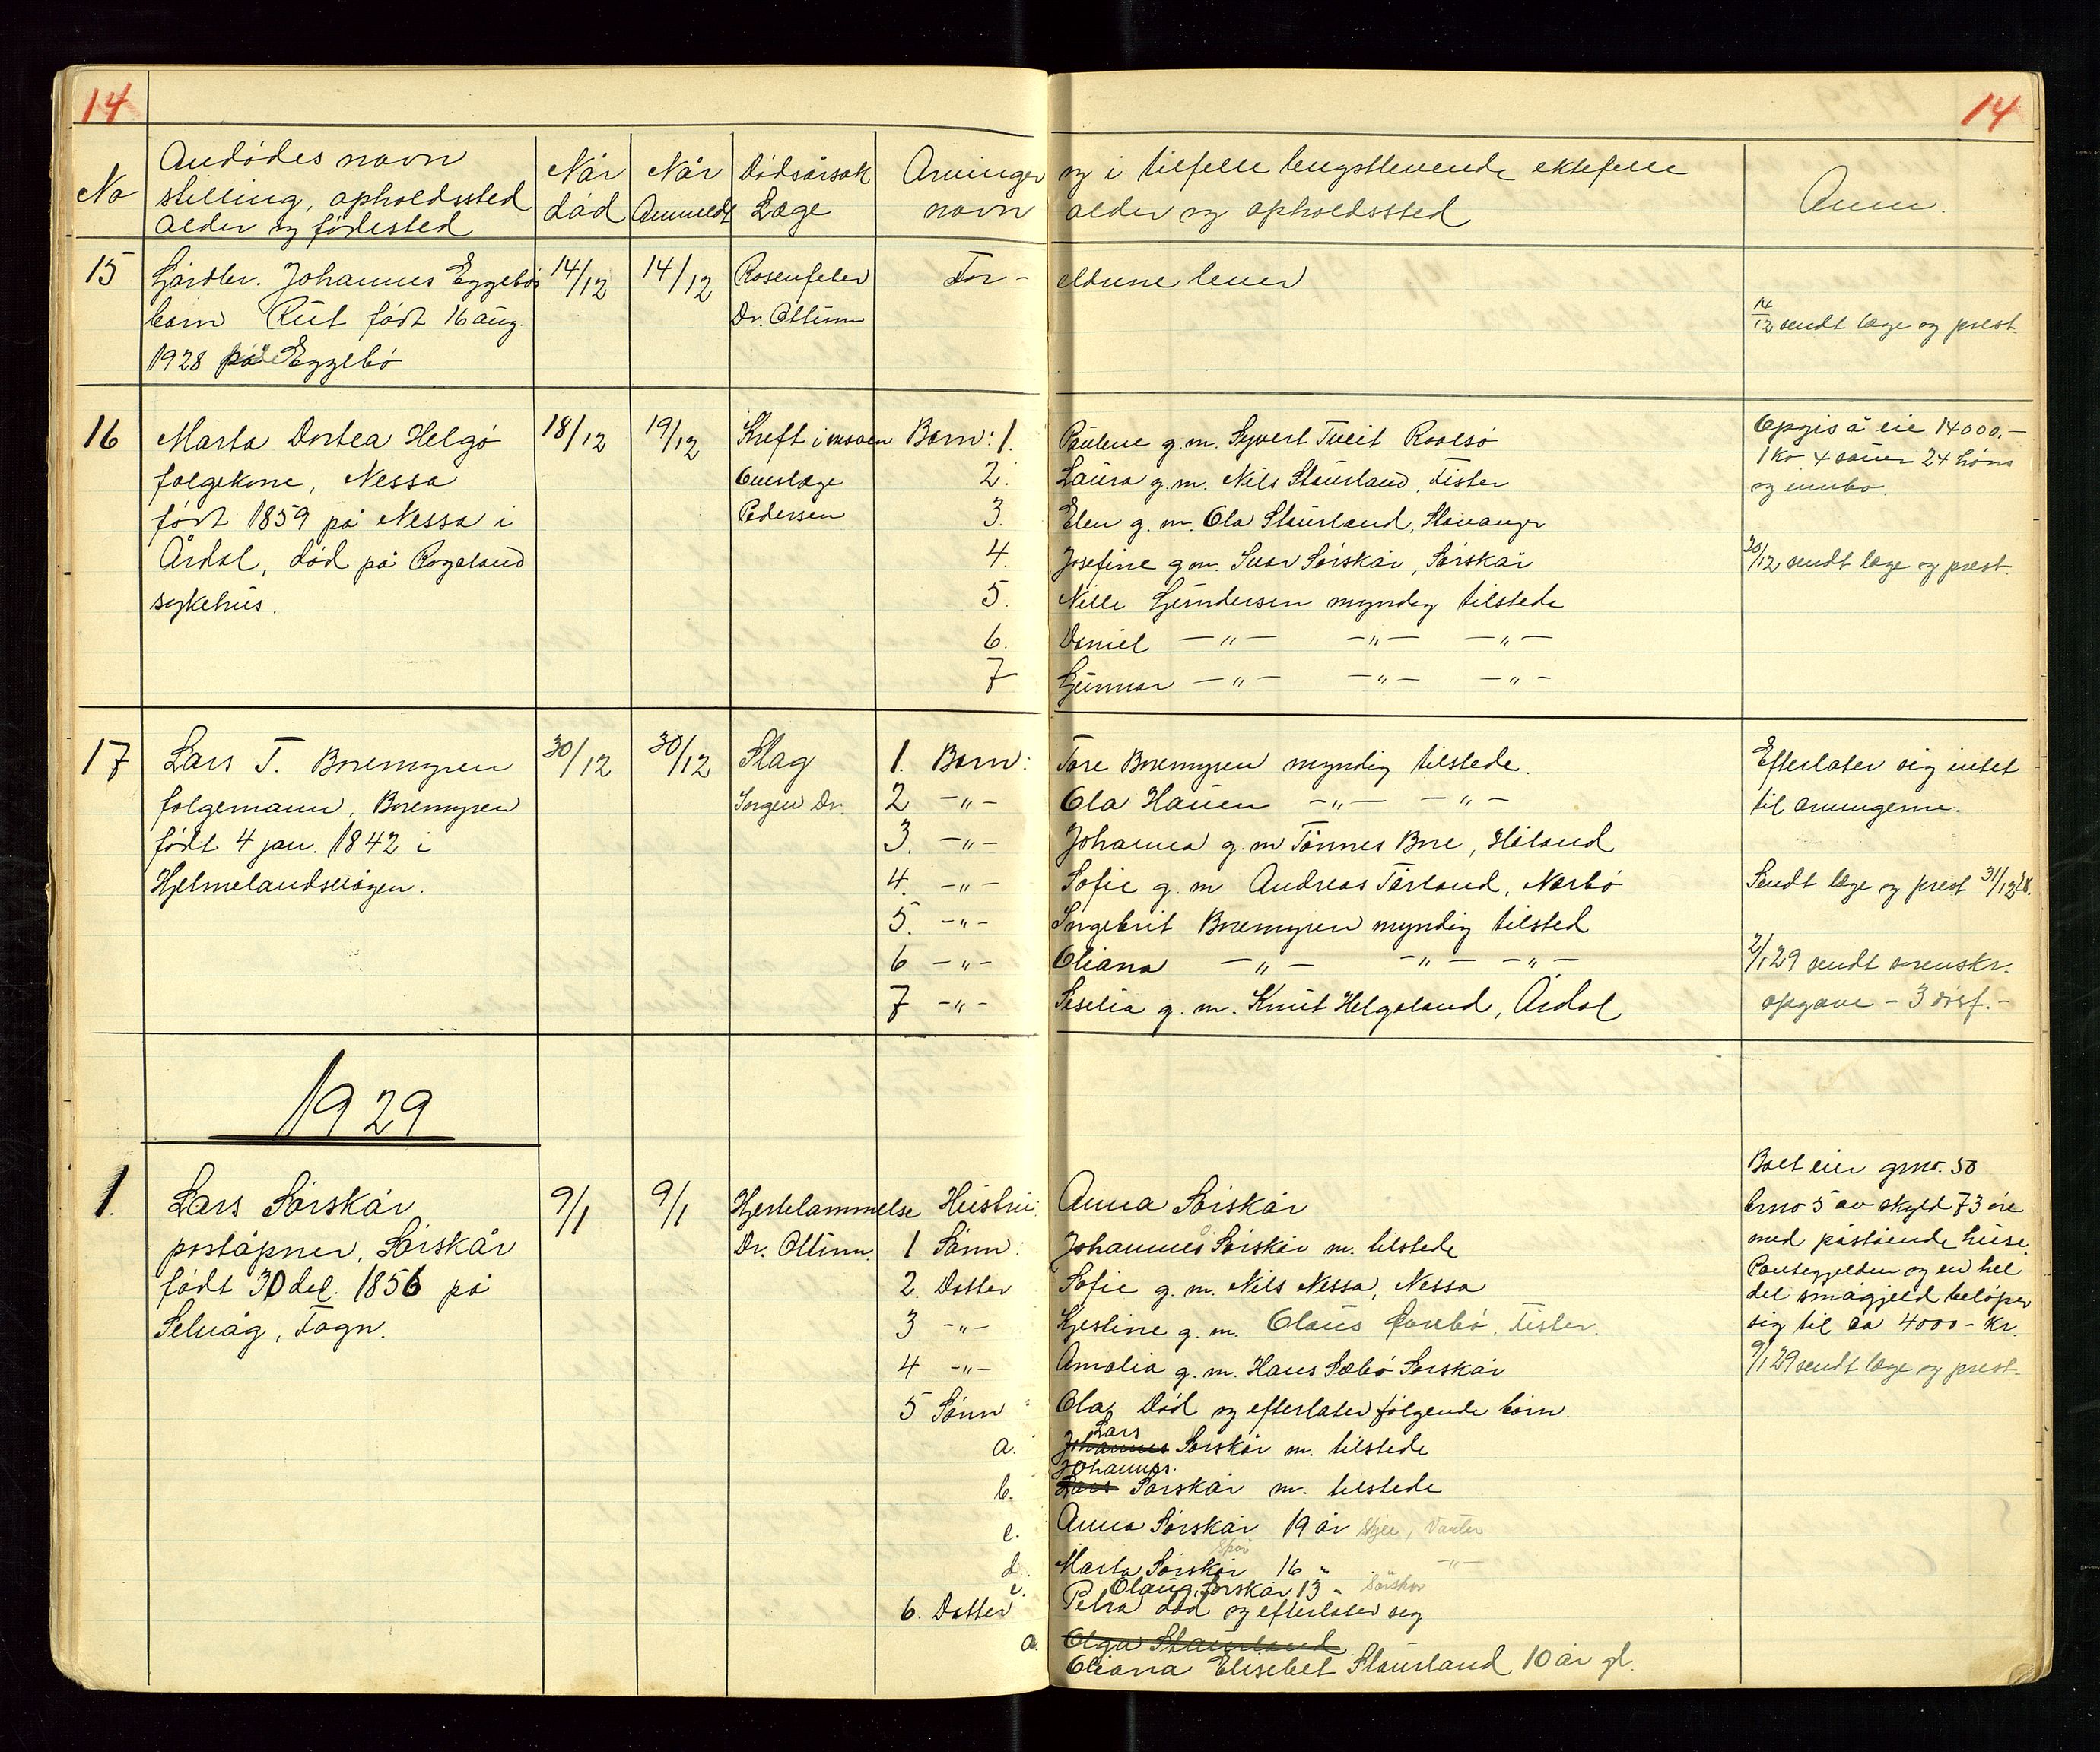 14
14
No
Avdödes navn
stilling, opholdssted
alder og födested
Når
död
Når
Anmeldt
Dödsårsak
Læge
Arvinger og i tilfelle lengstlevende ektefelle
navn alder og opholdssted
Anm.
15
Gårdbr. Johannes Eggebö
barn Rut født 16 aug.
1928 på Eggebö
14/12
14/12
Rosenfeber
Dr. Ottinn
For- eldrene lever
14/12 sendt læge og prest
16
Marta Dortea Helgö
folgekone, Nessa
født 1859 på Nessa i
Årdal, död på Rogaland
sykehus.
18/12
19/12
Kreft i maven
Overlæge
Pedersen
Barn: 1. Pauline g.m. Syvert Tveit Roalsö
2. Laura g.m. Nils Staurland, Fister
3. Elen g.m. Ola Staurland, Stavanger
4. Josefine g.m. Ivar Sörskår, Sörskår
5. Nille Gundersen myndig tilstede
6. Daniel —"— —"— —"—
7 Gunnar —"— —"— —"—
Opgis å eie 14000.-
1 ko 4 sauer 24 höns
og innbo.
20/12 sendt læge og prest.
17
Lars T. Boremyren
folgemann, Boremyren
født 4 jan. 1842 i
Hjelmelandsvågen.
30/12
30/12
Slag
Dr.
1. Barn: Tore Boremyren myndig tilstede.
2 -"- Ola Hauen -"- -"-
3. -"- Johanna g.m Tönnes Bore, Håland
4. -"- Sofie g.m Andreas Tårland, Nærbö
5. -"- Ingebrit Boremyren myndig tilsted
6 -"- Oliana —"— —"— —"—
7 -"- Seselia g.m. Knut Helgaland, Årdal
Efterlater sig intet
til arvingerne.
Sendt læge og prest 31/12 28.
2/1 29 sendt sorenskr.
opgave - 3 dösf. -
1929
1.
Lars Sörskår
poståpner, Sörskår
født 30 des. 1856 på
Selvåg, Fogn.
9/1
9/1
Hjertelammelse
Dr. Ottinn
Hustru: Anna Sörskår
1 Sönn: Johannes Sörskår m. tilstede
2. Datter Sofie g.m. Nils Nessa, Nessa
3 -"- Kjestine g.m. Olaus Fister.
4 -"- Amalia g.m. Hans Sæbö Sörskår
5 Sönn " Ola, Död og efterlater følgende börn.
a. Johannes Lars Sörskår m. tilstede
b. Lars Johannes. Sörskår m. tilstede
c. Anna Sörskår 19 år
d. Marta Sörskår 16 " -"-
e. Olaug Sörskår 13 " Sörskår
6. Datter Petra död og efterlater seg
a. Olga Staurland
Oliana Elisebet Staurland 10 år gl.
Boet eier grno. 50
brno 5 av skyld 73 øre
med påstående huse.
Pantegjelden og en hel
del smågjeld beløper
sig til ca 4000 - kr.
9/1 29 sendt læge og prest